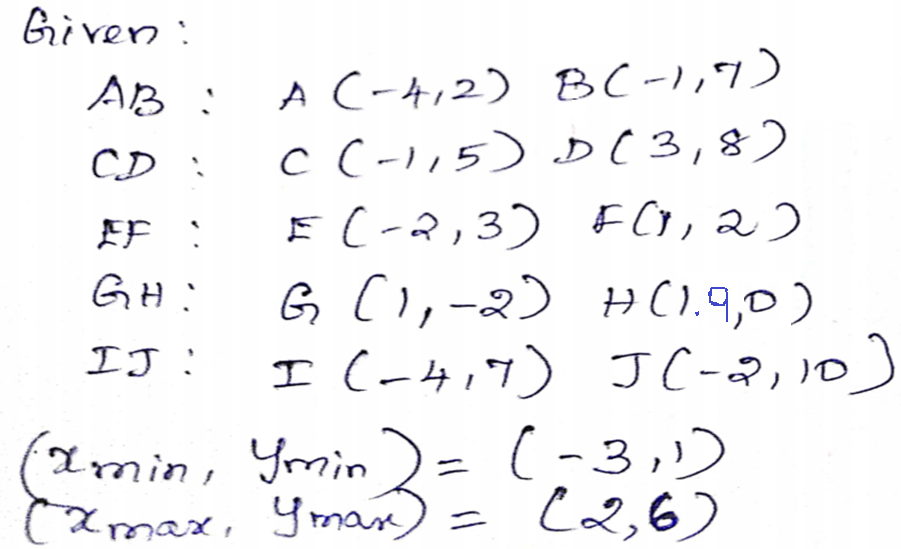 Given :
AB : A (-4,2) B(-1,7)
CD : C (-1,5) D(3,8)
EF : E (-2,3) F(1,2)
GH : G (1,-2) H(1.9,0)
IJ : I (-4,7) J(-2,10)
(xmin, ymin) = (-3,1)
(xmax, ymax) = (2,6)